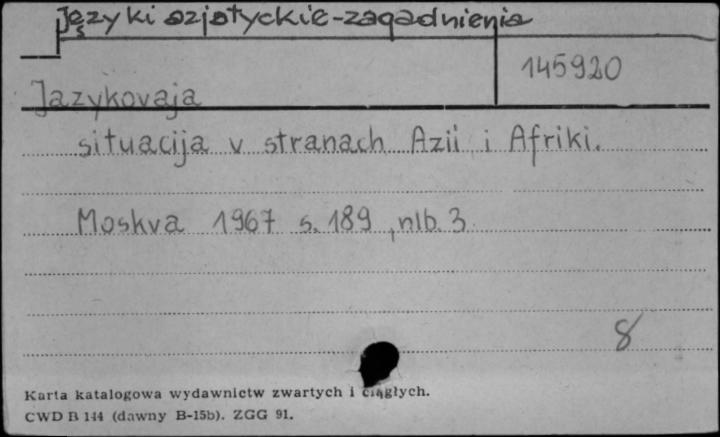 Języki azjatyckie-zagadnienia
145920
Jazykovaja
situacija v stranach Azii i Afriki.
Moskva 1967 s. 189, nlb. 3
8
Karta katalogowa wydawnictw zwartych i ciągłych.
CWD B 144 (dawny B-15b). ZGG 91.